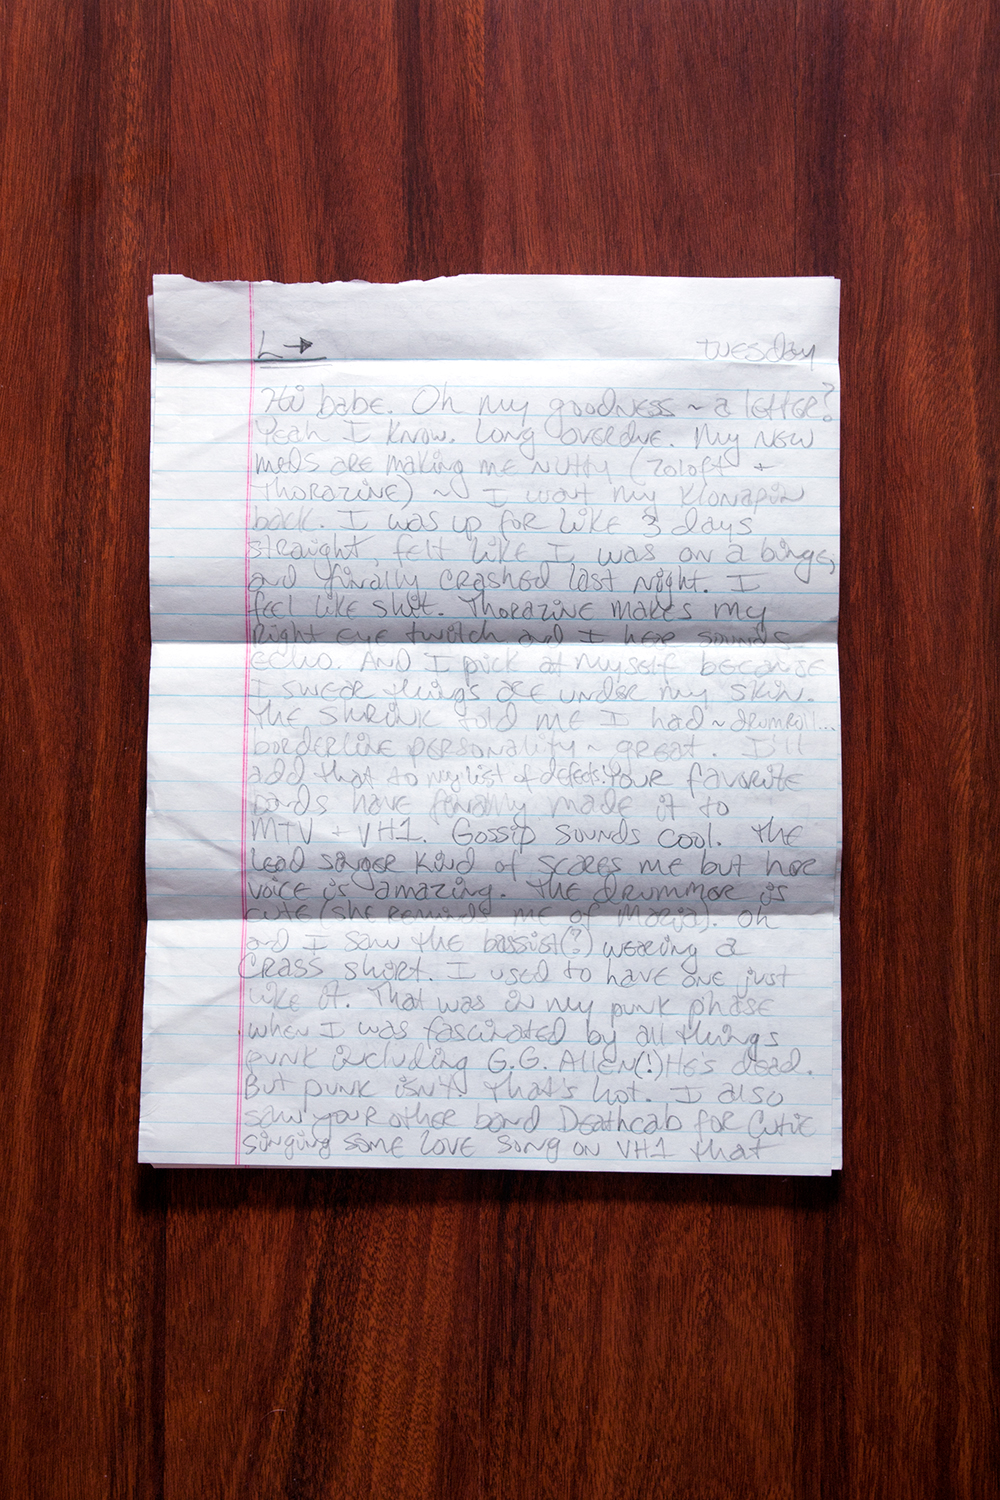 L→ Tuesday
Hi babe. Oh my goodness ~ a letter?
Yeah I know. Long overdue. My new
meds are making me nutty (Zoloft +
Thorazine) ~ I want my Klonapin
back. I was up for like 3 days
straight, felt like I was on a binge,
and finally crashed last night. I
feel like shit. Thorazine makes my
right eye twitch and I hear sounds
echo. And I pick at myself because
I swear things are under my skin.
The shrink told me I had ~ drumroll...
borderline personality ~ great. I'll
add that to my list of defects. Your favorite
bands have finally made it to
MTV + VH1. Gossip sounds cool. The
lead singer kind of scares me but her
voice is amazing. The drummer is
cute (she reminds me of Maria). Oh
and I saw the bassist(?) wearing a
Crass shirt. I used to have one just
like it. That was in my punk phase
when I was fascinated by all things
punk including G.G. Allen(!) He's dead.
But punk isn't. That's hot. I also
saw your other band Deathcab for Cutie
singing some love song on VH1 that